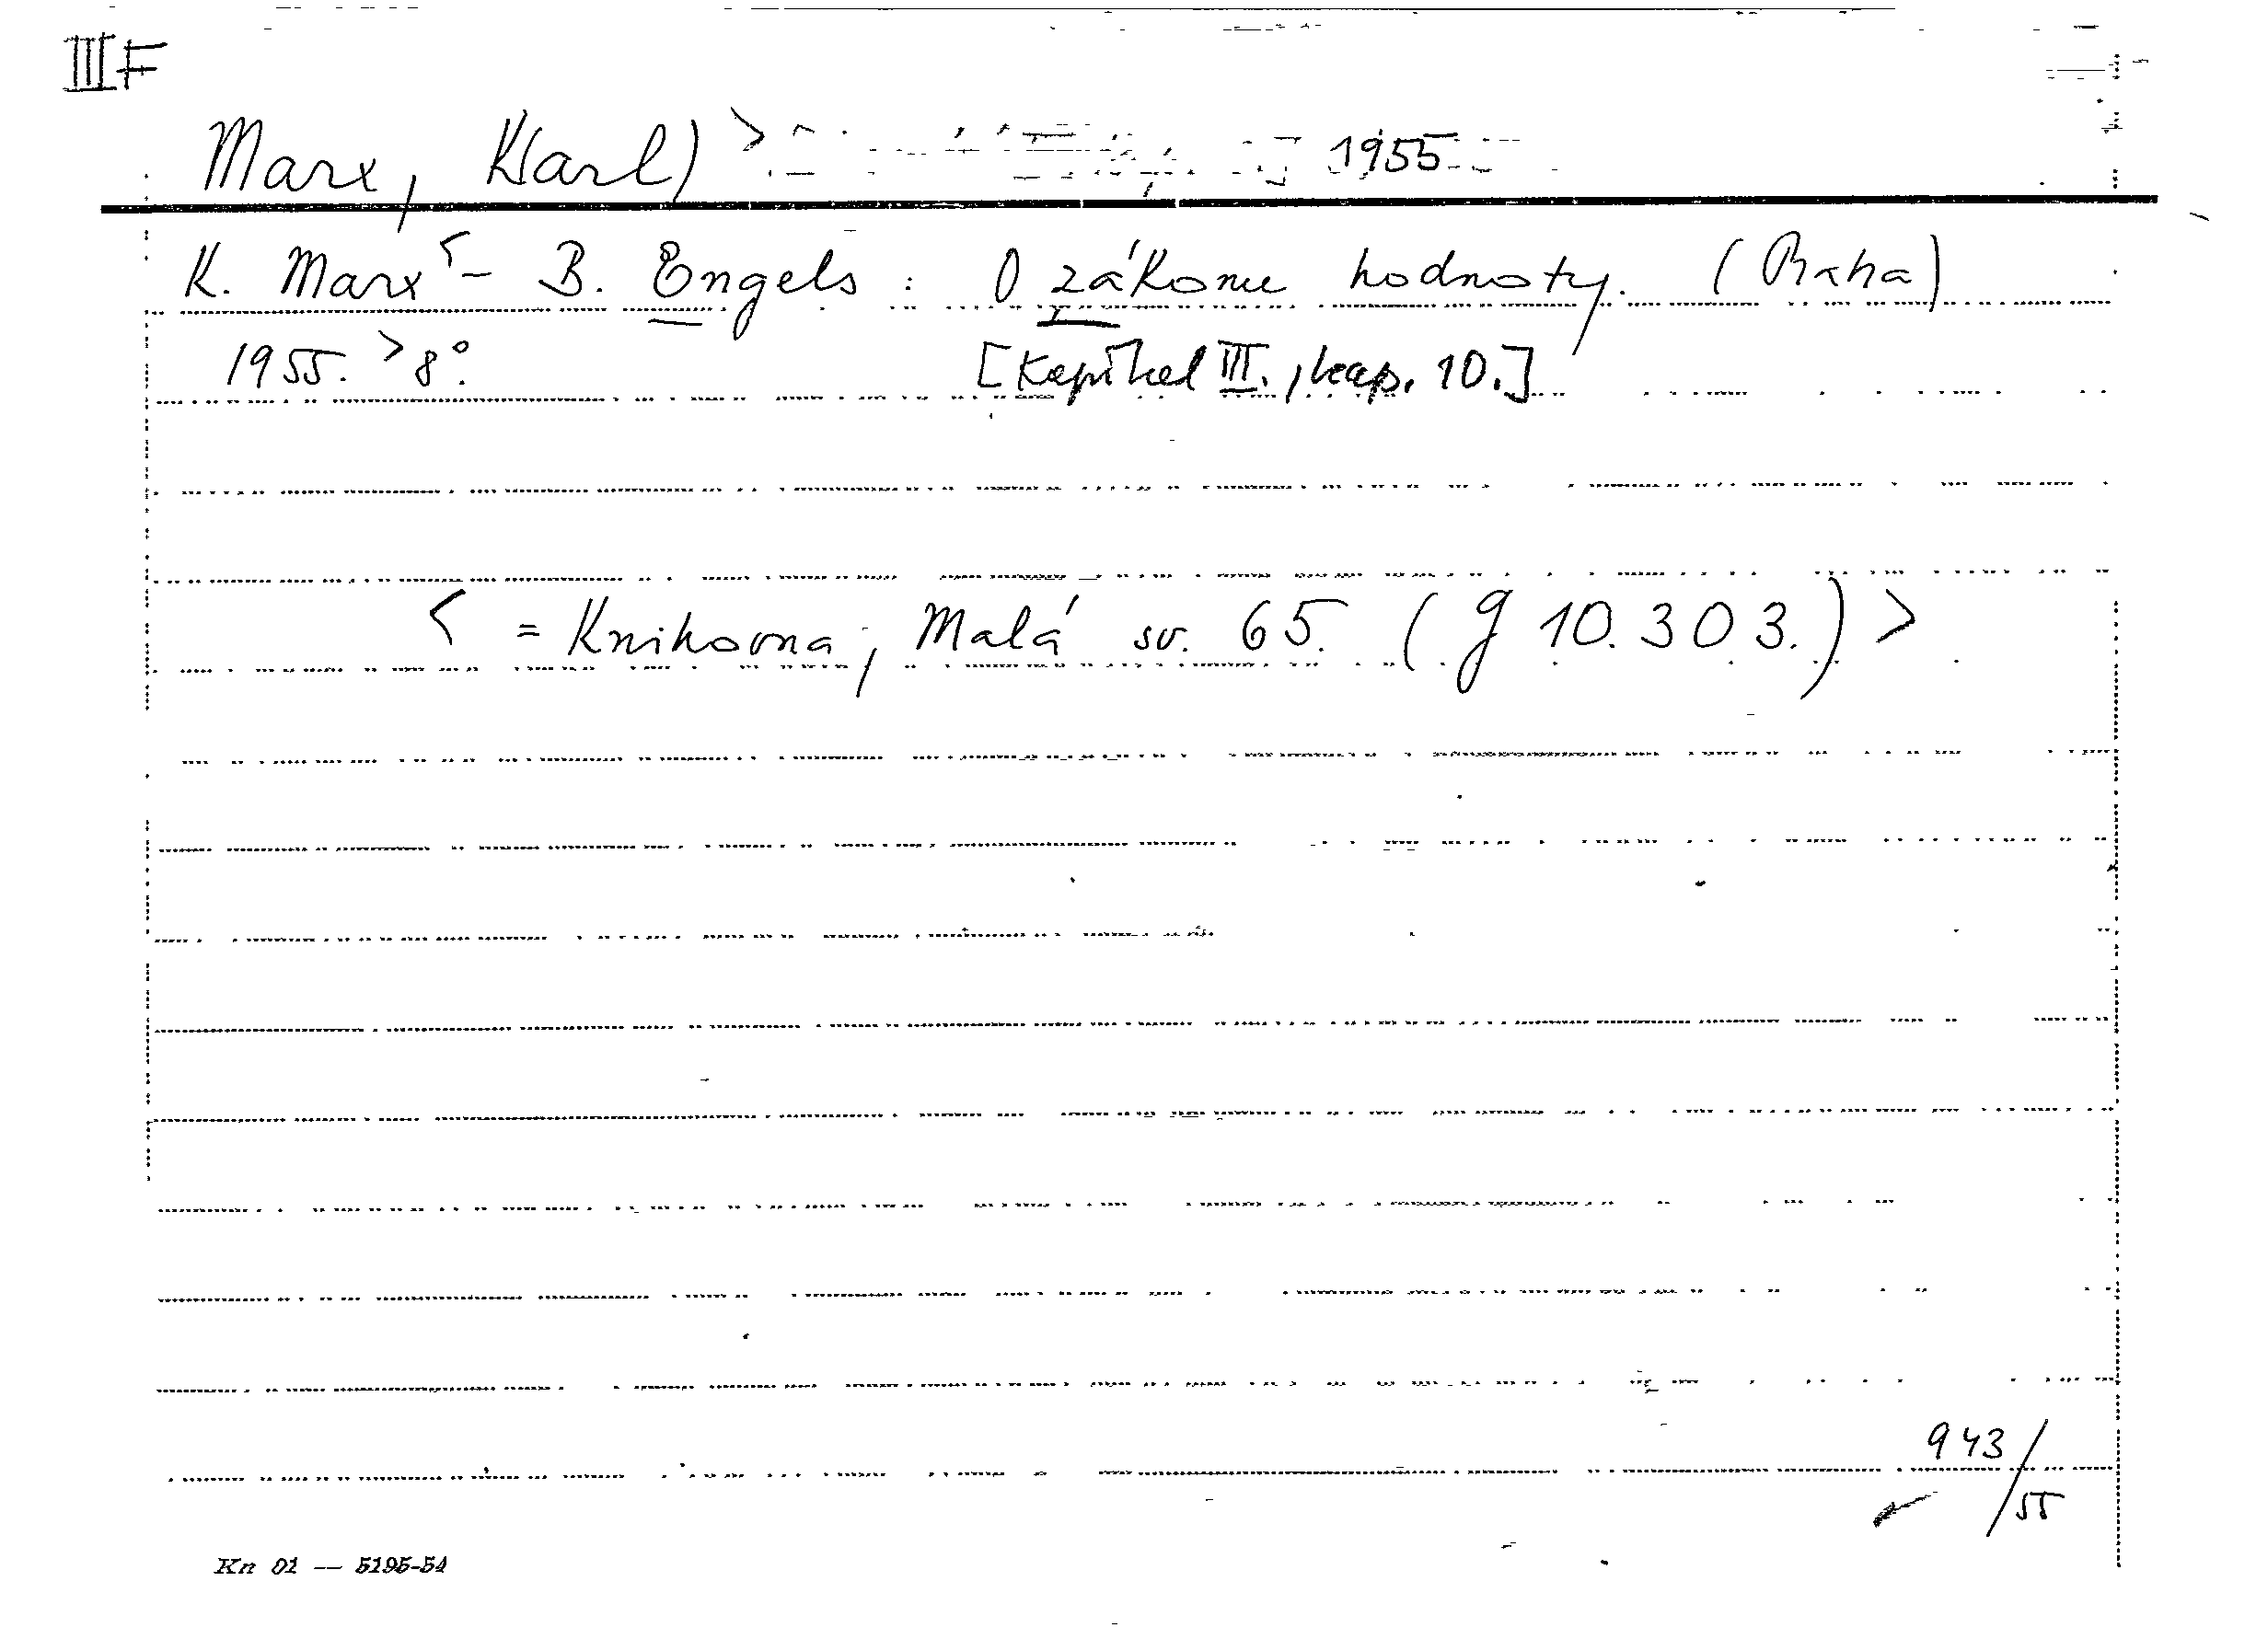 III F
Marx, K(arl) > 1955
K. Marx < - B. Engels : O zákonu hodnoty. (Praha)
1955. > 8°. [Kapitel III., kap. 10.]
< = Knihovna, Malá sv. 65. (g 10.303.) >
943/55
Kn 01 — 5195-54